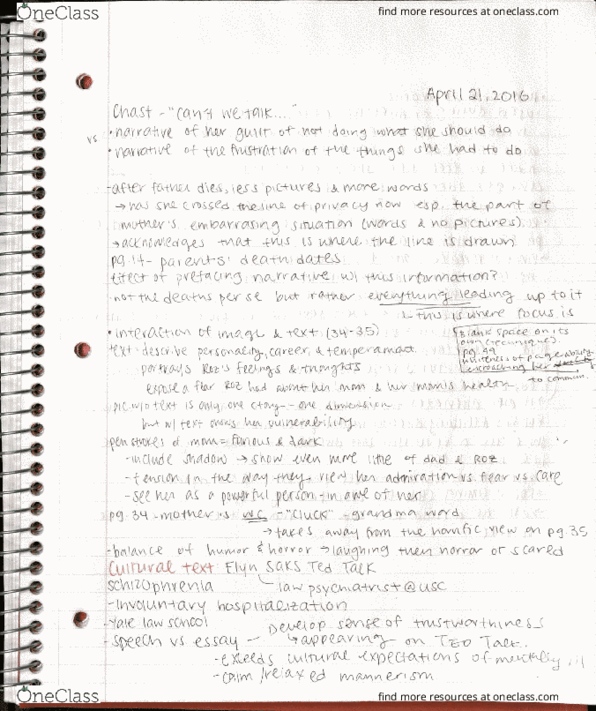 OneClass
find more resources at oneclass.com
April 21, 2016
Chast - "Can't we talk..."
vs • narrative of her guilt of not doing what she should do
• narrative of the frustration of the things she had to do
-after father dies, less pictures & more words
→ has she crossed the line of privacy now esp. the part of
mother's embarrasing situation (words & no pictures)
→ acknowledges that this is where the line is drawn
pg. 14 - parents' death dates
Effect of prefacing narrative w/ this information?
not the deaths per se but rather everything leading up to it
↳ this is where focus is
• interaction of image & text (34-35)
Blank space on its own (techniques).
pg. 99
text- describe personality, career, & temperament
portrays Roz's feelings & thoughts
expose a fear Roz had about her mom & her mom's health
to commun.
pic w/o text is only one - one dimension
but w/ text shows her vulnerability
pen strokes of mom = furious & dark
-include shadow → show even more little of dad & Roz
-tension in the way they view her admiration vs. fear vs. care
-see her as a powerful person - in awe of her
pg. 34 - mother is - "cluck" - grandma word
→ takes away from the horrific view on pg 35
-balance of humor & horror → laughing then horror or scared
Cultural text Elyn Saks Ted Talk
schizophrenia law psychiatrist @ USC
-Involuntary hospitalization
-Yale law school Develop sense of trustworthiness
-speech vs essay - ↳ appearing on TED Talk.
-exceeds cultural expectations of mentally ill
-calm/relaxed mannerism
OneClass
find more resources at oneclass.com